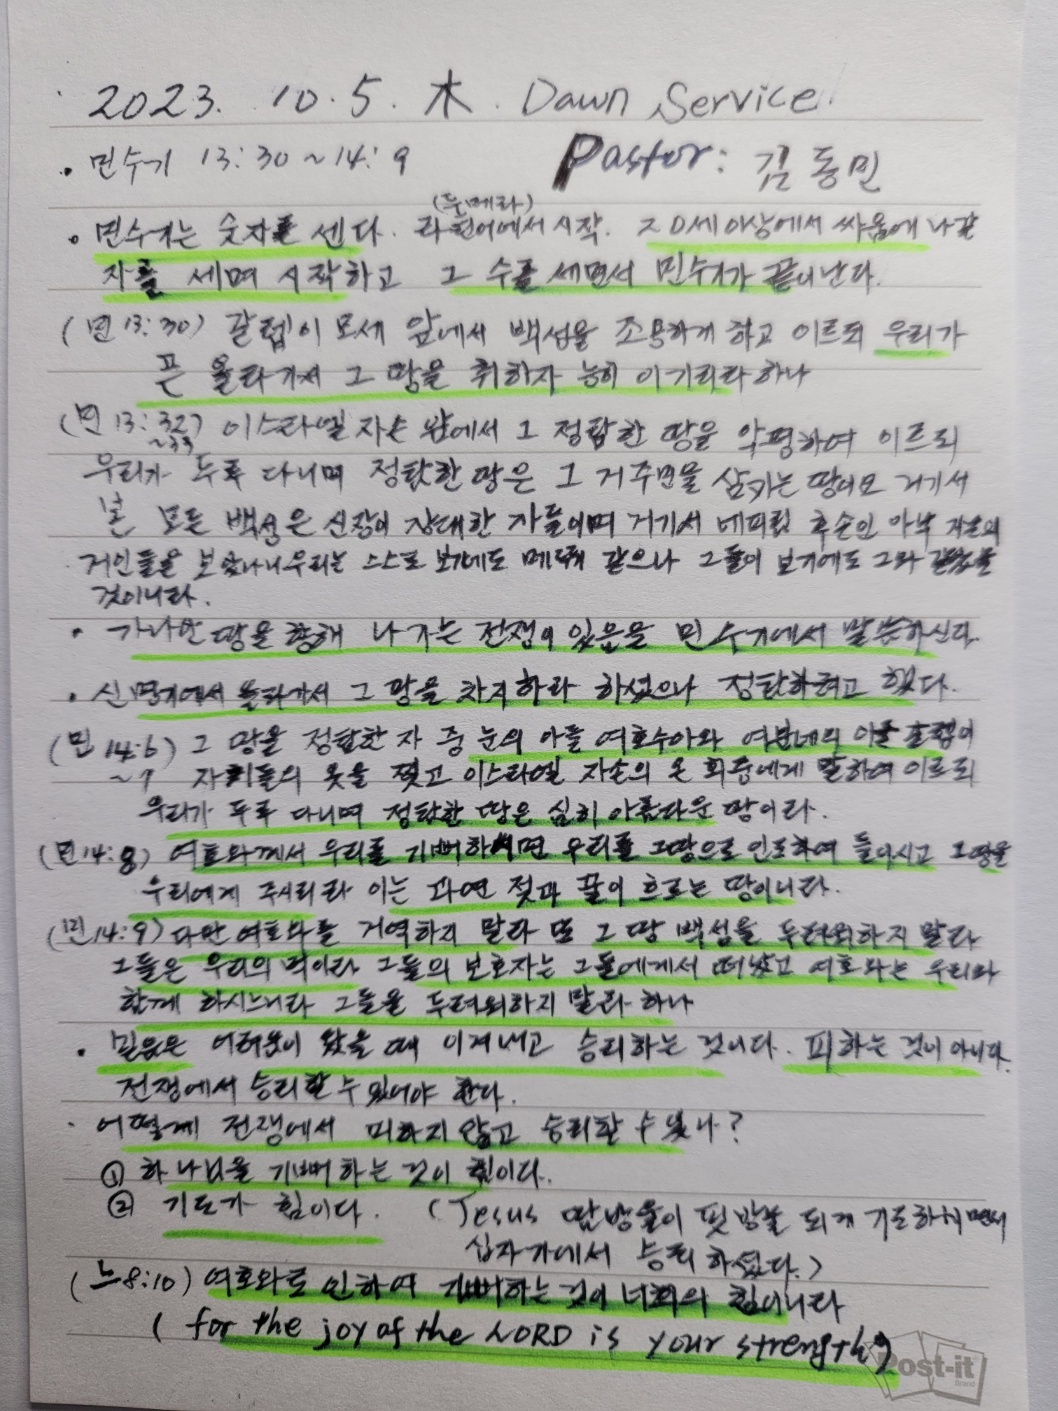 2023. 10. 5. 木. Dawn Service
• 민수기 13:30~14:9 Pastor: 김동민
• 민수기는 숫자를 센다. 라틴어에서 시작. 20세이상에서 싸움에 나갈
자를 세며 시작하고 그 수를 세면서 민수기가 끝이난다.
(민 13:30) 갈렙이 모세 앞에서 백성을 조용하게 하고 이르되 우리가
곧 올라가서 그 땅을 취하자 능히 이기리라 하나
(민 13:32) 이스라엘 자손 앞에서 그 정탐한 땅을 악평하여 이르되
~33
우리가 두루 다니며 정탐한 땅은 그 거주민을 삼키는 땅이요 거기서
본 모든 백성은 신장이 장대한 자들이며 거기서 네피림 후손인 아낙 자손의
거인들을 보았나니 우리는 스스로 보기에도 메뚜기 같으나 그들이 보기에도 그와 같았을
것이니라.
• 가나안 땅을 향해 나가는 전쟁이 있음을 민수기에서 말씀하신다.
• 신명기에서 올라가서 그 땅을 차지하라 하셨으나 정탐하려고 했다.
(민 14:6) 그 땅을 정탐한 자 중 눈의 아들 여호수아와 여분네의 아들 갈렙이
~7 자기들의 옷을 찢고 이스라엘 자손의 온 회중에게 말하여 이르되
우리가 두루 다니며 정탐한 땅은 심히 아름다운 땅이라.
(민14:8) 여호와께서 우리를 기뻐하시면 우리를 그땅으로 인도하여 들이시고 그땅을
우리에게 주시리라 이는 과연 젖과 꿀이 흐르는 땅이니라.
(민14:9) 다만 여호와를 거역하지 말라 또 그 땅 백성을 두려워하지 말라
그들은 우리의 먹이라 그들의 보호자는 그들에게서 떠났고 여호와는 우리와
함께 하시느니라 그들을 두려워하지 말라 하나
• 믿음은 어려움이 왔을 때 이겨내고 승리하는 것이다. 피하는 것이 아니다.
전쟁에서 승리할 수 있어야 한다.
• 어떻게 전쟁에서 피하지 않고 승리할 수 있나?
① 하나님을 기뻐하는 것이 힘이다.
② 기도가 힘이다. (Jesus 땀방울이 핏방울 되게 기도하시면서
십자가에서 승리 하셨다.)
(느8:10) 여호와로 인하여 기뻐하는 것이 너희의 힘이니라
(for the joy of the LORD is your strength)
Post-it